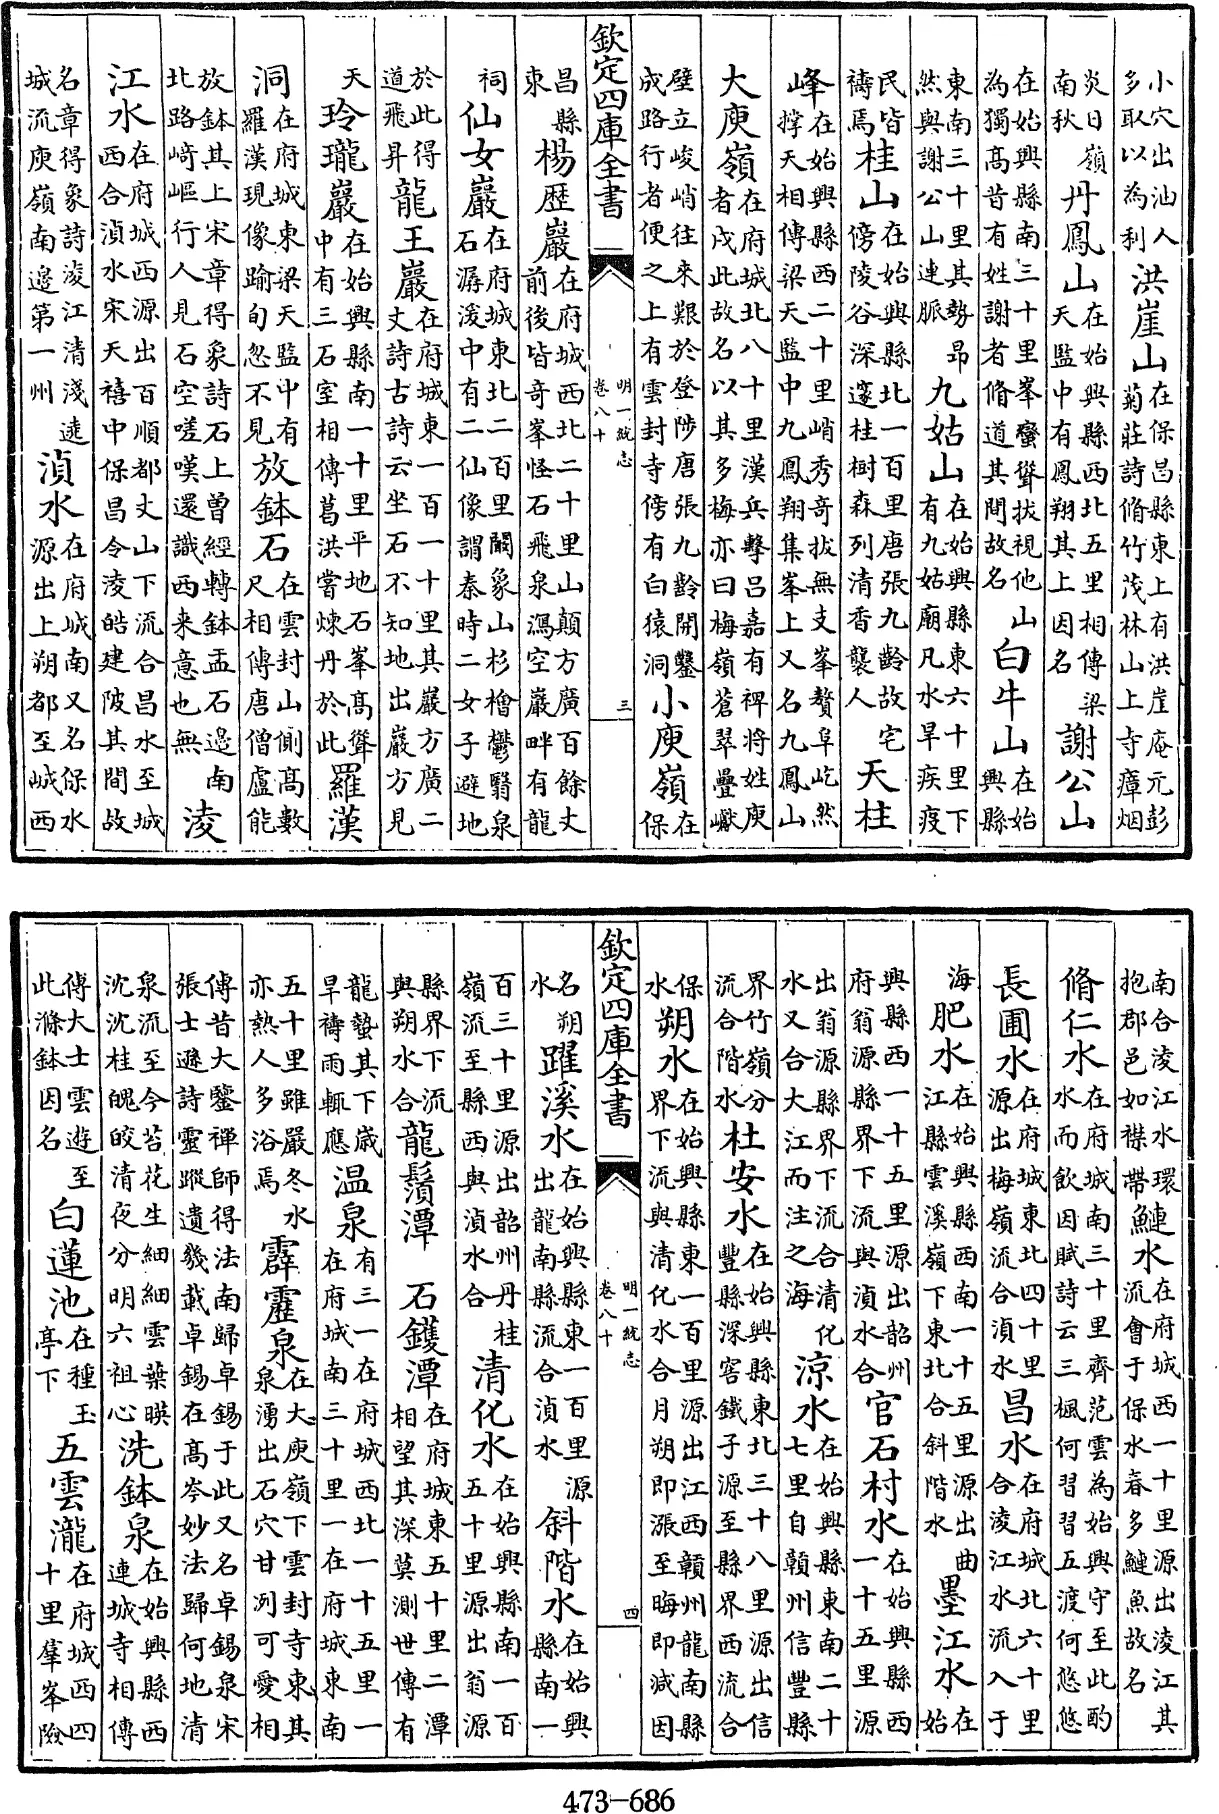 小穴出油人多取以為利洪崖山在保昌縣東上有洪崖庵元彭菊莊詩脩竹茂林山上寺瘴烟
炎日嶺南秋丹鳳山在始興縣西北五里相傳梁天監中有鳳翔其上因名謝公山
在始興縣南三十里峯巒聳拔視他山為獨髙昔有姓謝者脩道其間故名白牛山在始興縣
東南三十里其勢昂然與謝公山連脈九姑山在始興縣東六十里下有九姑廟凡水旱疾疫
民皆禱焉桂山在始興縣北一百里唐張九齡故宅傍陵谷深邃桂樹森列清香襲人天柱
峰在始興縣西二十里峭秀奇拔無支峯贅阜屹然撑天相傳梁天監中九鳳翔集峯上又名九鳳山
大庾嶺在府城北八十里漢兵擊吕嘉有裨將姓庾者戍此故名以其多梅亦曰梅嶺蒼翠疊巘
壁立峻峭往來艱於登陟唐張九齡開鑿成路行者便之上有雲封寺傍有白猿洞小庾嶺在保
欽定四庫全書
明一統志
卷八十
三
昌縣東楊歴巖在府城西北二十里山顛方廣百餘丈前後皆奇峯怪石飛泉瀉空巖畔有龍
祠仙女巖在府城東北二百里闕象山杉檜鬱翳泉石潺湲中有二仙像謂秦時二女子避地
於此得道飛昇龍王巖在府城東一百一十里其巖方廣二丈詩古詩云坐石不知地出巖方見
天玲瓏巖在始興縣南一十里平地石峯髙聳中有三石室相傳葛洪嘗煉丹於此羅漢
洞在府城東梁天監中有羅漢現像踰旬忽不見放鉢石在雲封山側髙數尺相傳唐僧盧能
放鉢其上宋章得象詩石上曽經轉鉢盂石邉南北路﨑嶇行人見石空嗟嘆還識西来意也無凌
江水在府城西源出百順都丈山下流合昌水至城西合湞水宋天禧中保昌令淩皓建陂其間故
名章得象詩淩江清淺遶城流庾嶺南邉第一州湞水在府城南又名保水源出上朔都至峸西
南合淩江水環抱郡邑如襟帶鰱水在府城西一十里源出淩江其流會于保水春多鰱魚故名
脩仁水在府城南三十里齊范雲為始興守至此酌水而飲因賦詩云三楓何習習五渡何悠悠
長圃水在府城東北四十里源出梅嶺流合湞水昌水在府城北六十里合淩江水流入于
海肥水在始興縣西南一十五里源出曲江縣雲溪嶺下東北合斜階水墨江水在始
興縣西一十五里源出韶州府翁源縣界下流與湞水合官石村水在始興縣西一十五里源
出翁源縣界下流合清化水又合大江而注之海涼水在始興縣東南二十七里自贛州信豐縣
界竹嶺分流合階水杜安水在始興縣東北三十八里源出信豐縣深窖鐵子源至縣界西流合
保水朔水在始興縣東一百里源出江西贛州龍南縣界下流與清化水合月朔即漲至晦即減因
欽定四庫全書
明一統志
卷八十
四
名朔水躍溪水在始興縣東一百里源出龍南縣流合湞水斜階水在始興縣南一
百三十里源出韶州丹桂嶺流至縣西與湞水合清化水在始興縣南一百五十里源出翁源
縣界下流與朔水合龍鬚潭 石鑊潭在府城東五十里二潭相望其深莫測世傳有
龍蟄其下歲旱禱雨輒應温泉有三一在府城西北一十五里一在府城南三十里一在府城東南
五十里雖嚴冬水亦熱人多浴焉霹靂泉在大庾嶺下雲封寺東其泉湧出石穴甘冽可愛相
傳昔大鑒禪師得法南歸卓錫于此又名卓錫泉宋張士遜詩靈蹤遺幾載卓錫在髙岑妙法歸何地清
泉流至今苔花生細細雲葉暎沈沈桂魄皎清夜分明六祖心洗鉢泉在始興縣西連城寺相傳
傅大士雲遊至此滌鉢因名白蓮池在種玉亭下五雲瀧在府城西四十里羣峯險
473-686